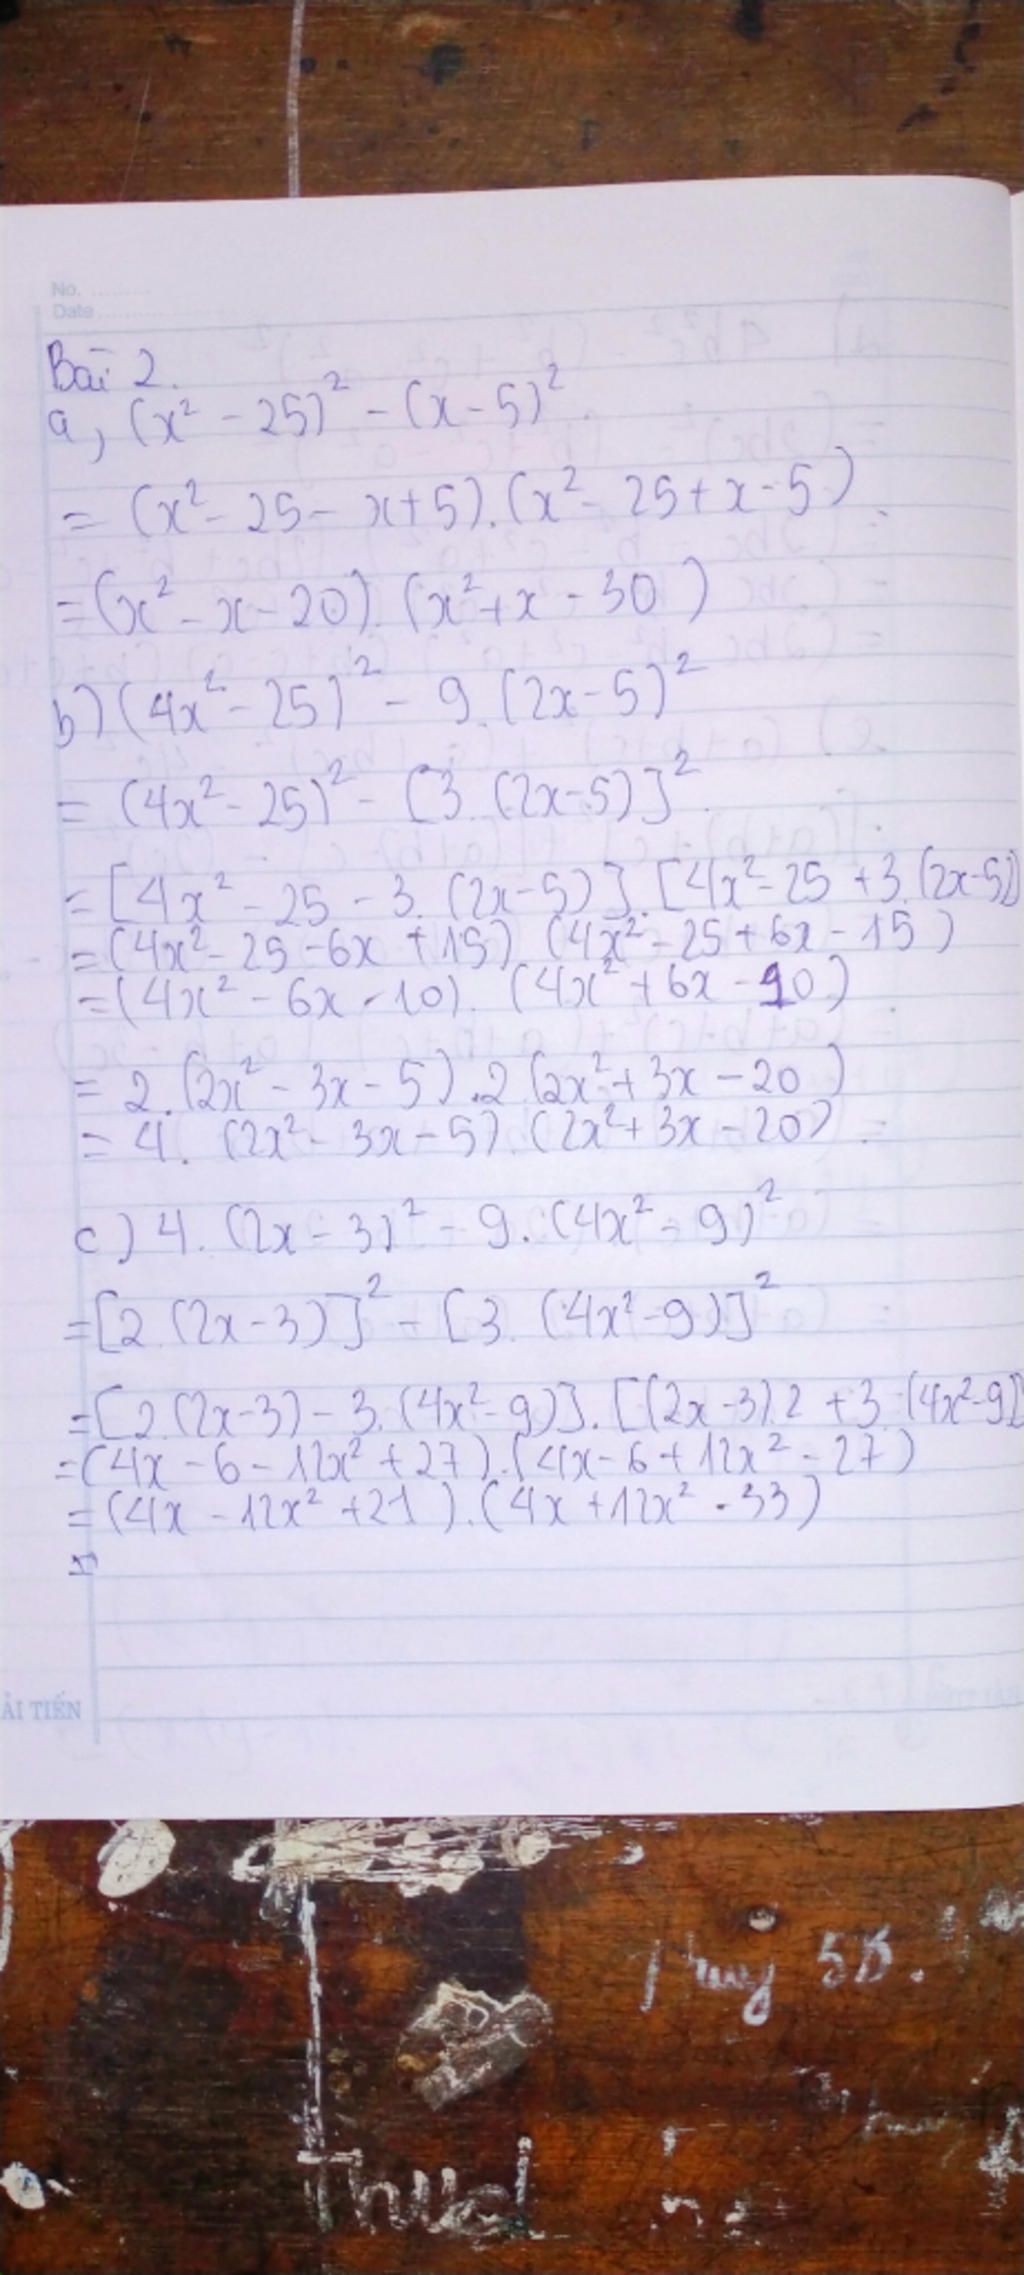 No. ..........
Date ..................
Bài 2.
a, (x² - 25)² - (x - 5)²
= (x² - 25 - x + 5).(x² - 25 + x - 5).
= (x² - x - 20).(x² + x - 30)
b) (4x² - 25)² - 9.(2x - 5)²
= (4x² - 25)² - [3.(2x - 5)]².
= [4x² - 25 - 3.(2x - 5)].[4x² - 25 + 3.(2x - 5)]
= (4x² - 25 - 6x + 15).(4x² - 25 + 6x - 15)
= (4x² - 6x - 10).(4x² + 6x - 90)
= 2.(2x² - 3x - 5).2(2x² + 3x - 20)
= 4.(2x² - 3x - 5).(2x² + 3x - 20)
c) 4.(2x - 3)² - 9.(4x² - 9)²
= [2.(2x - 3)]² - [3.(4x² - 9)]²
= [2.(2x - 3) - 3.(4x² - 9)].[(2x - 3).2 + 3.(4x² - 9)]
= (4x - 6 - 12x² + 27).(4x - 6 + 12x² - 27)
= (4x - 12x² + 21).(4x + 12x² - 33)
ẢI TIẾN
5D.